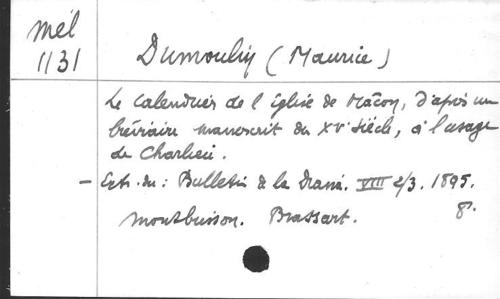 Mél
1131
Dumoulin (Maurice)
Le Calendrier de l'Eglise de Mâcon, d'après un
bréviaire manuscrit du XVe siècle, à l'usage
de Charlieu.
- Extr. du : Bulletin de la Diana. VIII 2/3. 1895.
Montbrison. Brassart. 8°.